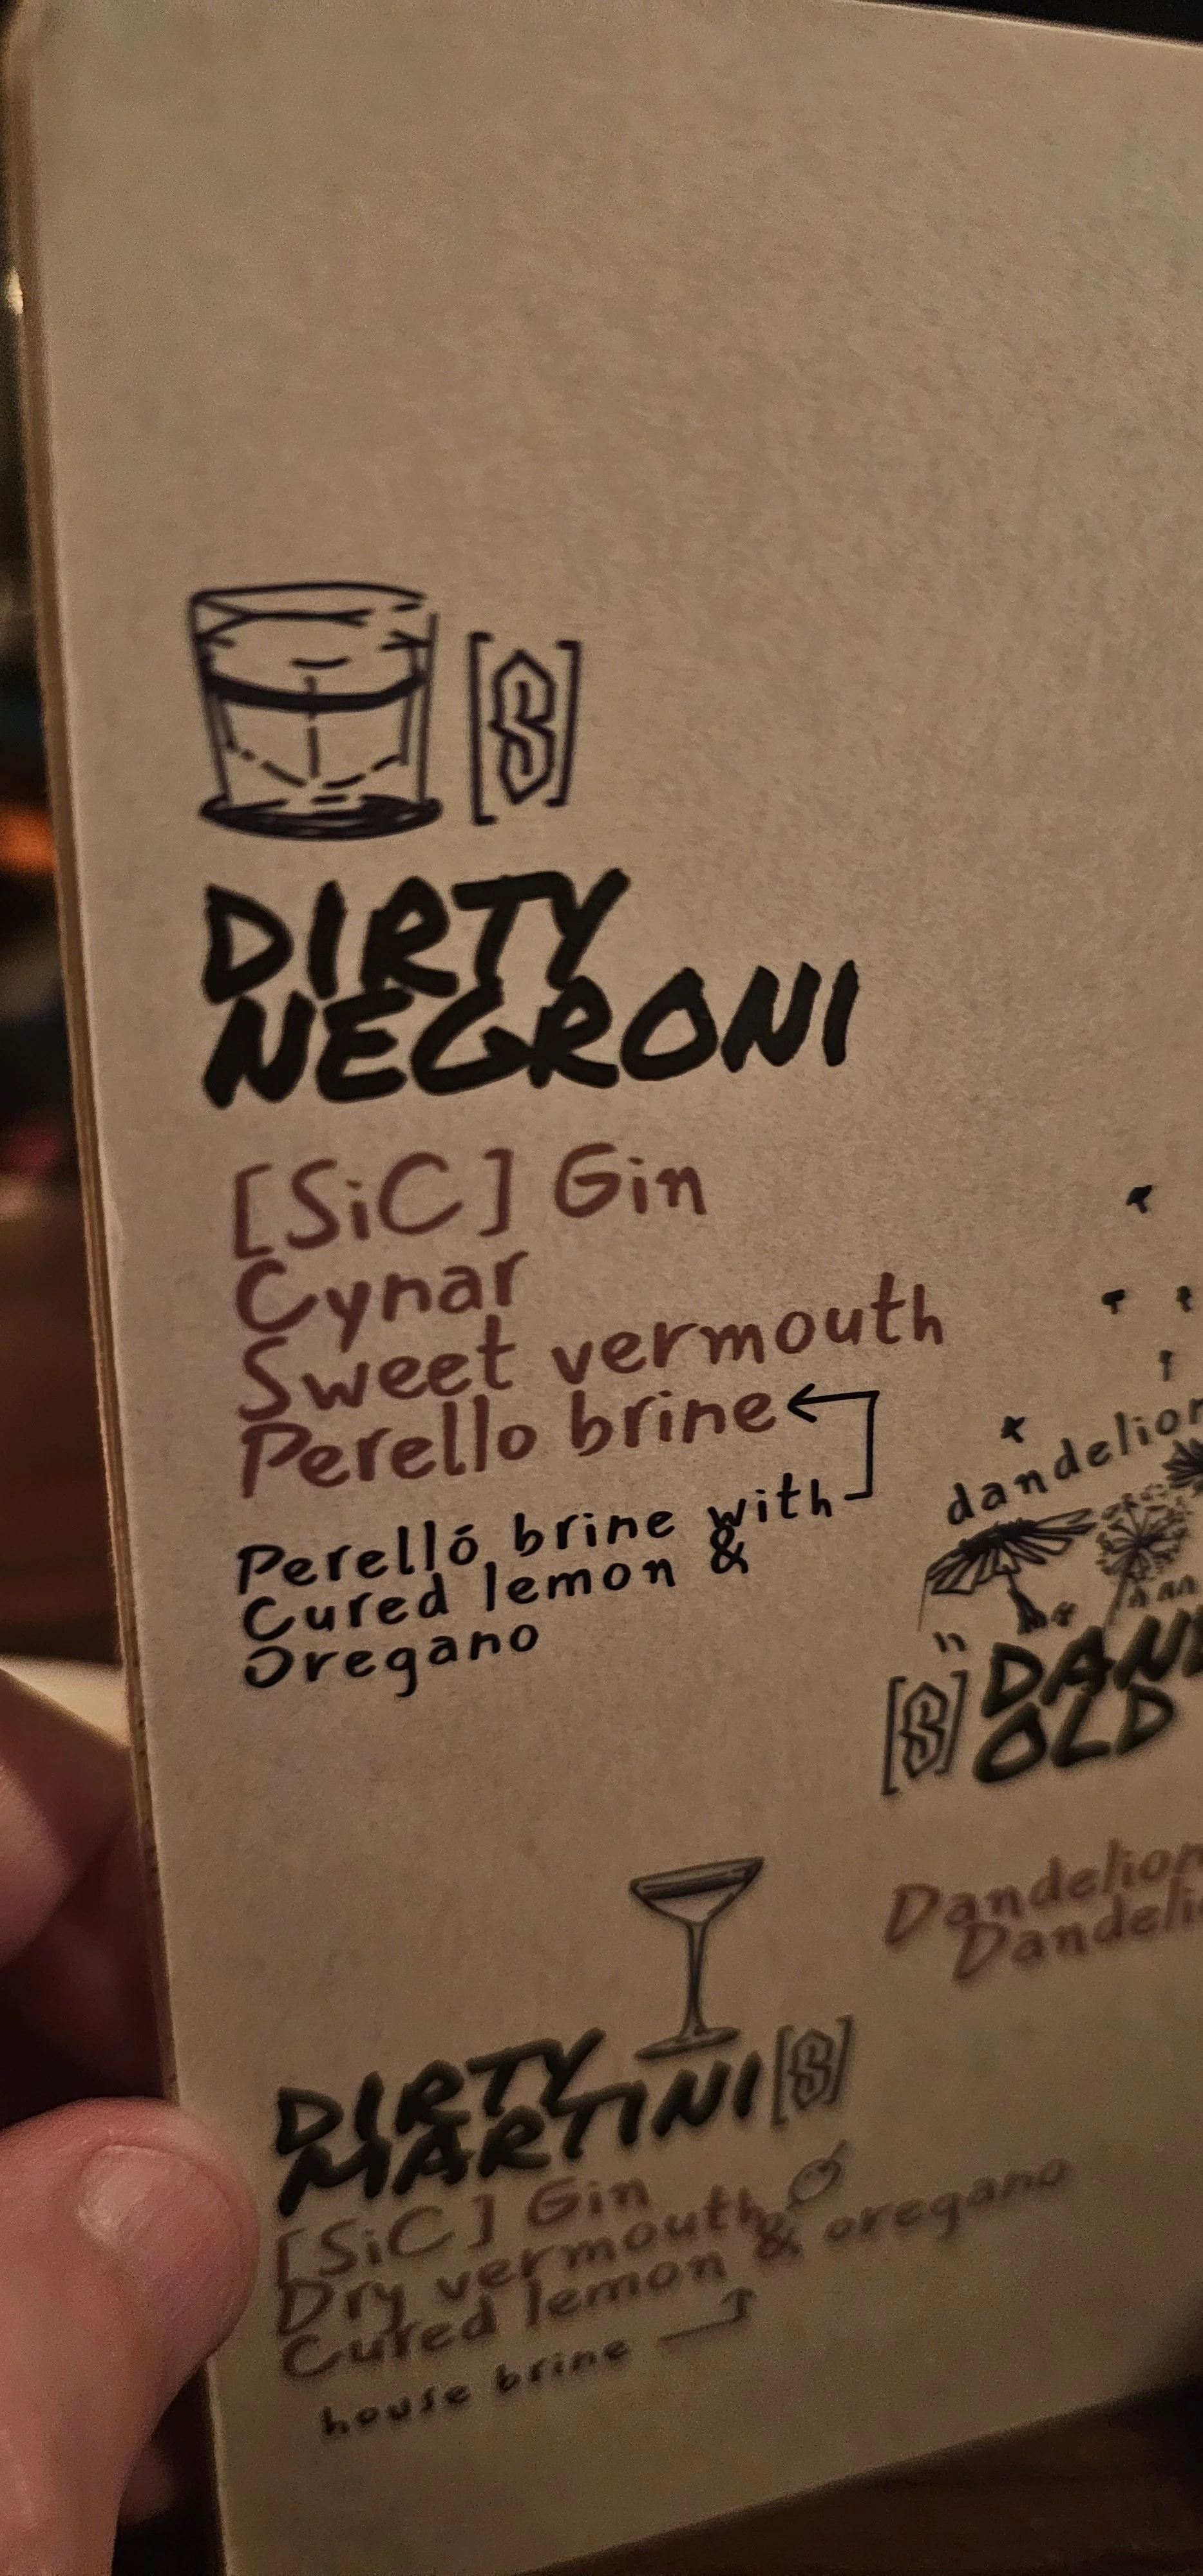 [S]
DIRTY
NEGRONI
[SiC] Gin
Cynar
Sweet vermouth
Perello brine
Perelló brine with
Cured lemon &
Oregano
[S]
OLD
DIRTY
MARTINI [S]
[SiC] Gin
Dry vermouth
Cured lemon & oregano
house brine